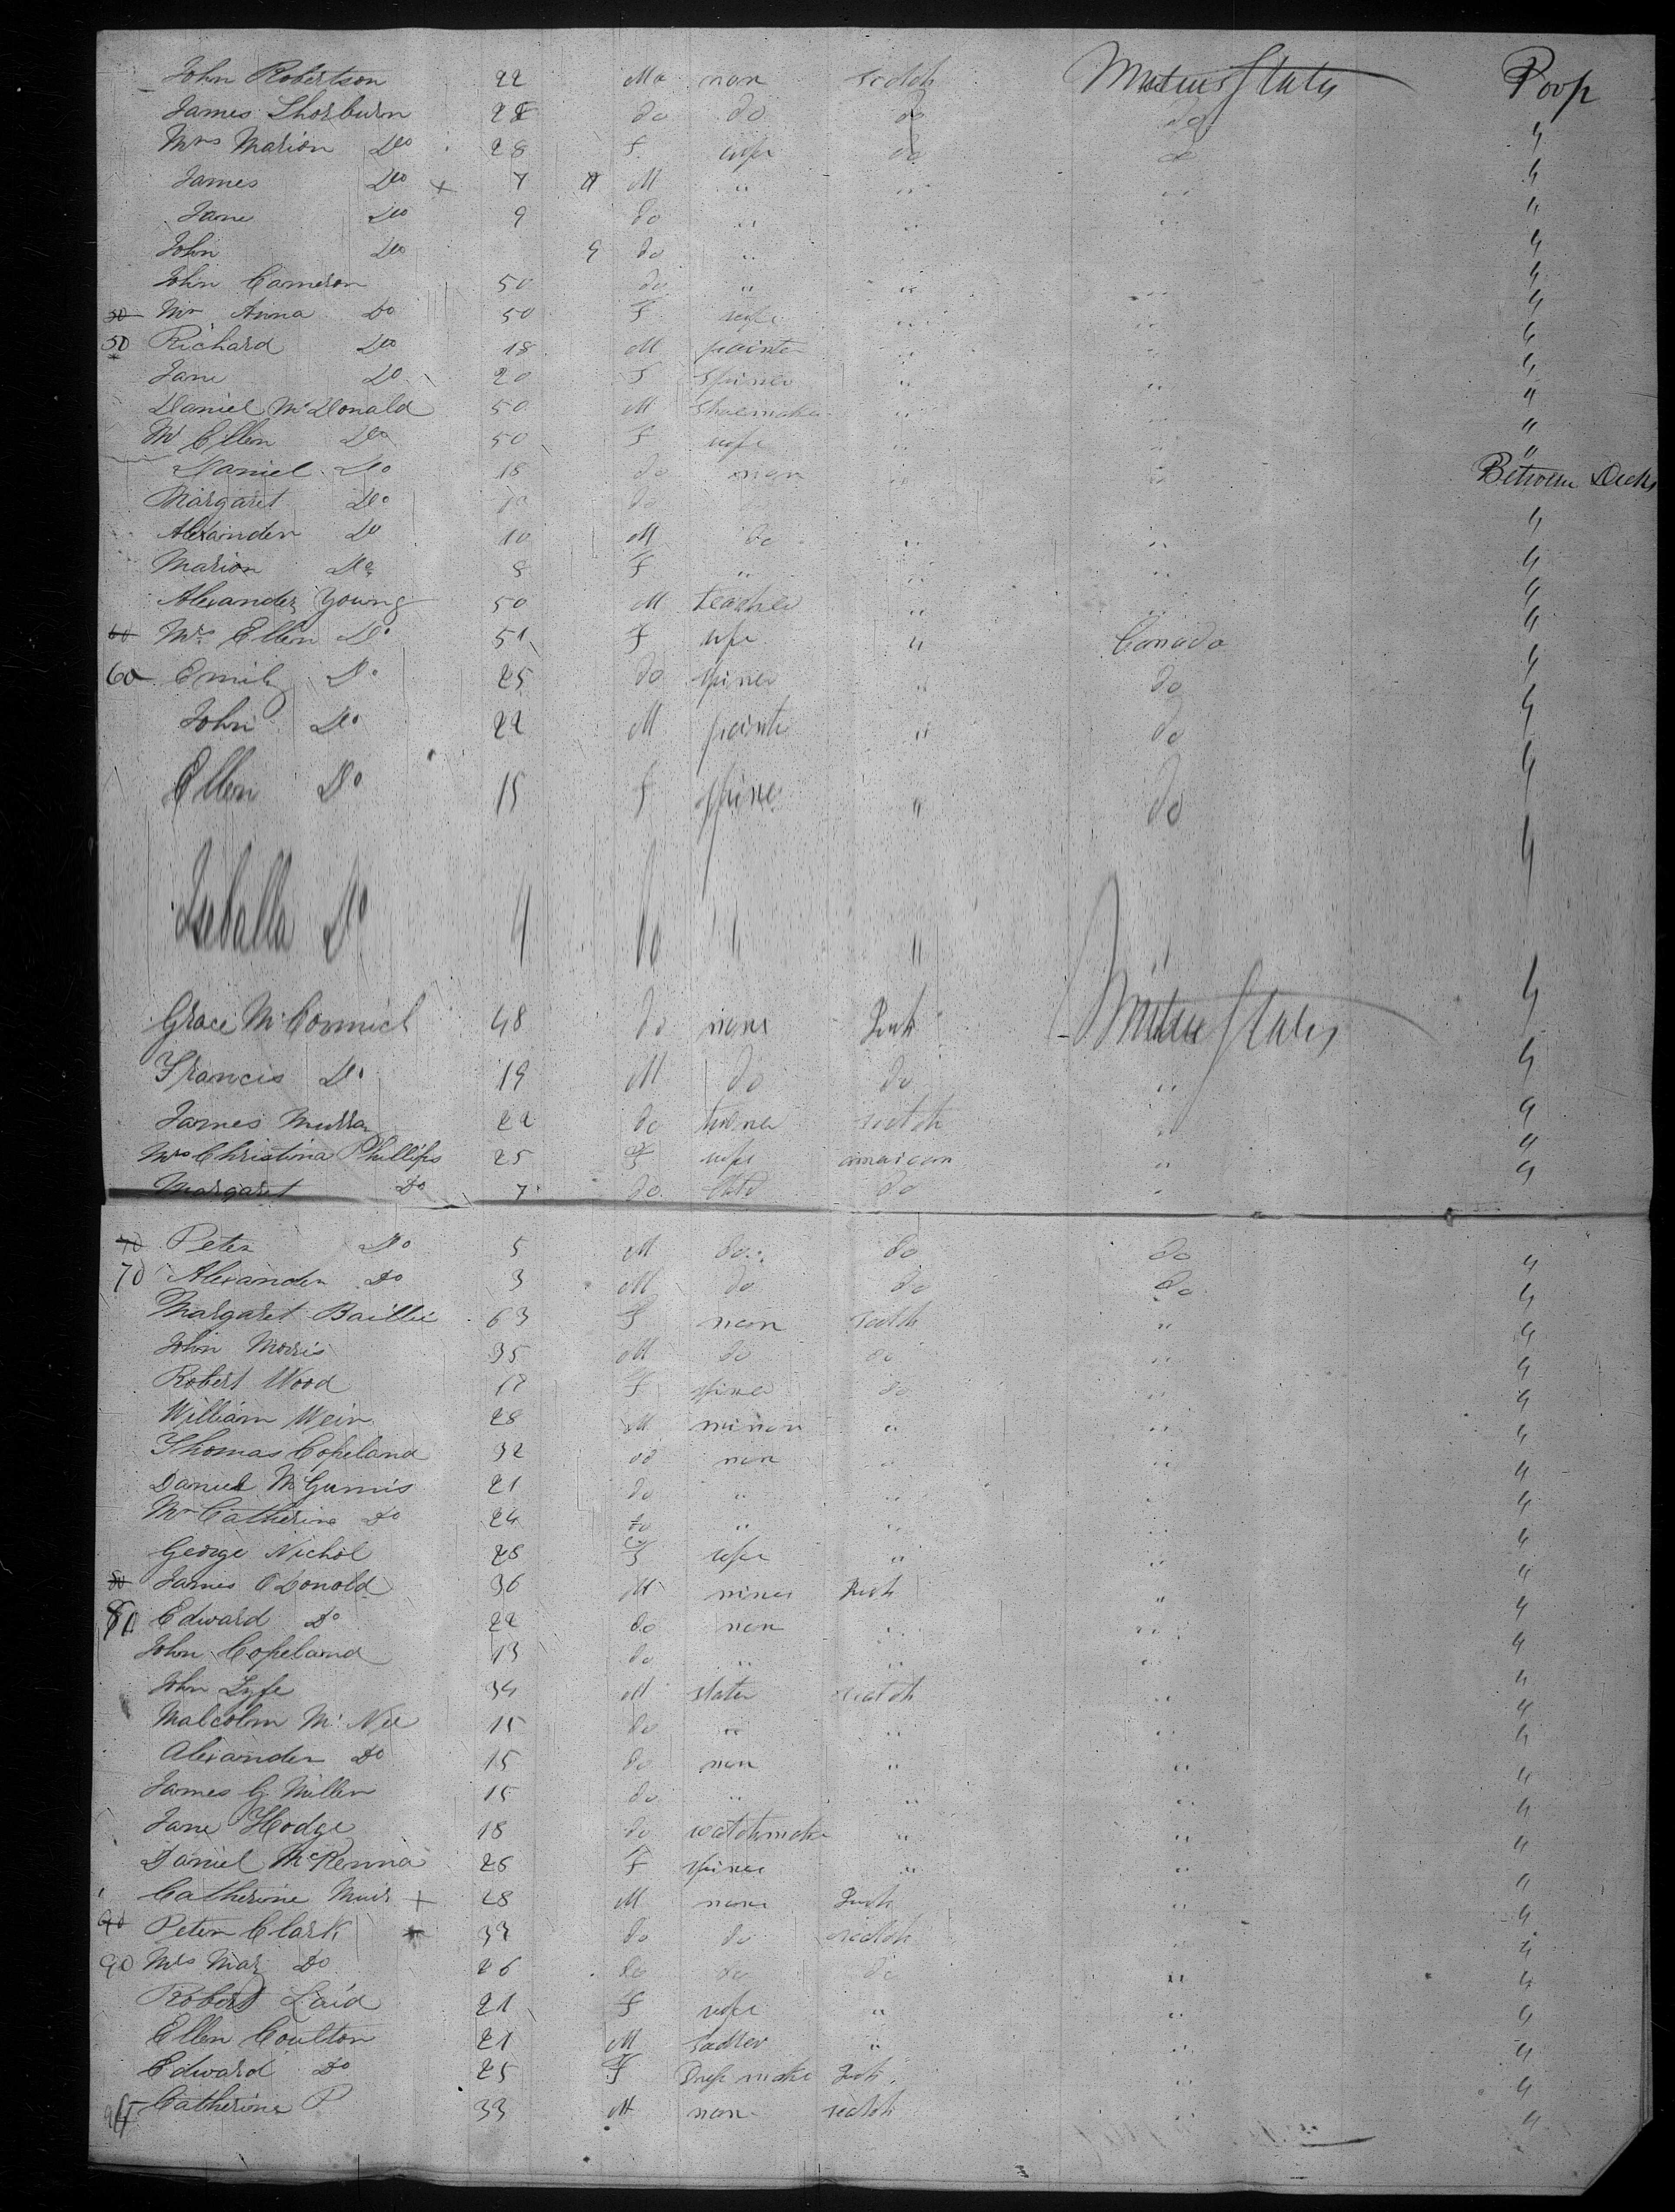 John Robertson 22 Ma non scotch United States Poop
James Thorburn 28 do do do do "
Mrs Marion Do 28 F wife do do "
James Do + 7 M " " " "
Jane Do 9 do " " " "
John Do 9 do " "
John Cameron 50 do " " " "
50 Mrs Anna Do 50 F wife " " "
50 Richard Do 18 M painter " " "
Jane Do 20 F spiner " " "
Daniel McDonald 50 M Shoemaker " " "
Mrs Ellen Do 50 F wife " " "
Daniel Do 18 do non " " Between Decks
Margaret Do do "
Alexander Do 10 M do " " "
Marion Do 8 F " " " "
Alexander Young 50 M teacher " " "
60 Mrs Ellen Do 51 F wife " Canada "
60 Emily Do 25 do spiner " do "
John Do 22 M painte " do "
Ellen Do 15 F spine " do "
Iseballa Do 4 do " " " "
Grace McCormick 48 do none Irish United States "
Francis Do 19 M do do " "
James Murray 22 do scotch " "
Mrs Christina Phillips 25 F wife american " "
Margaret Do 7 do do "
70 Peter Do 5 M do do do "
70 Alexander Do 3 M do do do "
Margaret Baillie 63 F non scotch " "
John Morris 35 M do do " "
Robert Wood 17 F spiner do " "
William Weir 28 M minor " " "
Thomas Copeland 32 do non " " "
Daniel McGunnis 21 do " " " "
Mrs Catherine Do 24 do " " " "
George Nichol 28 F wife " " "
80 James ODonald 36 M miner Irish " "
80 Edward Do 22 do non " " "
John Copeland 13 do " " " "
John Lyfe 34 M slater scotch " "
Malcolm McNee 15 do " " " "
Alexander Do 15 do non " " "
James G Millen 15 do " " " "
Jane Hodge 18 do watchmake " " "
Daniel McKenna 26 F spiner " " "
Catherine Muir + 28 M none Irish " "
90 Peter Clark 33 do do scotch " "
90 Mrs Mary Do 26 do do do " "
Robert Laid 21 F wife " " "
Ellen Coulton 21 M sadler " " "
Edward Do 25 F Dress make Irish " "
Catherine 33 M non scotch " "